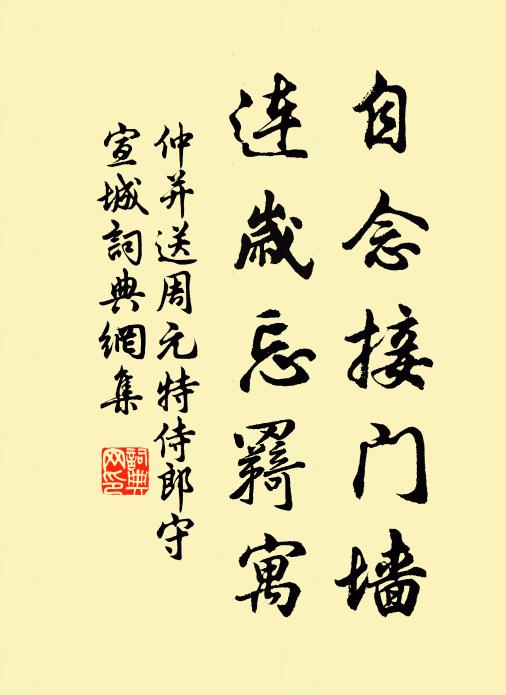 自念接门墙
连岁忘羁寓
仲并送周元特侍郎守
宣城詞典網集
詞典
网印